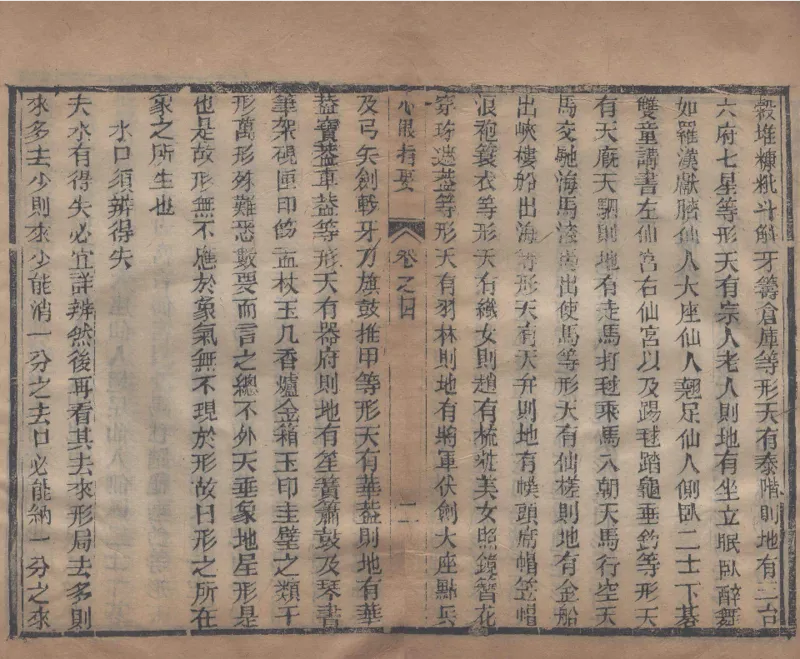 穀堆糠粃斗斛牙籌倉庫等形天有泰階則地有三台
六府七星等形天有宗人老人則地有坐立眠臥醉舞
如羅漢獻臍仙人大座仙人翹足仙人側臥二士下棊
雙童講書左仙宮右仙宮以及踢毬踏龜垂釣等形天
有天廐天駟則地有走馬打毬乘馬入朝天馬行空天
馬交馳海馬出使馬等形天有仙槎則地有金船
出峽樓船出海等形天有天弁則地有幞頭席帽笠帽
浪袍簑衣等形天有織女則地有梳粧美女照鏡簪花
等形天有羽林則地有將軍伏劍大座點兵
心眼指要
卷之四
及弓矢創戟牙刀旗鼓推甲等形天有華葢則地有華
葢寶葢車葢等形天有器府則地有笙簧簫鼓及琴書
筆架硯匣印笏盂杖玉几香爐金箱玉印圭璧之類千
形萬形殊難悉數要而言之總不外天垂象地星形是
也是故形無不應於象氣無不現於形故曰形之所在
象之所生也
水口須辨得失
夫水有得失必宜詳辨然後再看其去來形局去多則
來多去少則來少能消一分之去口必能納一分之來